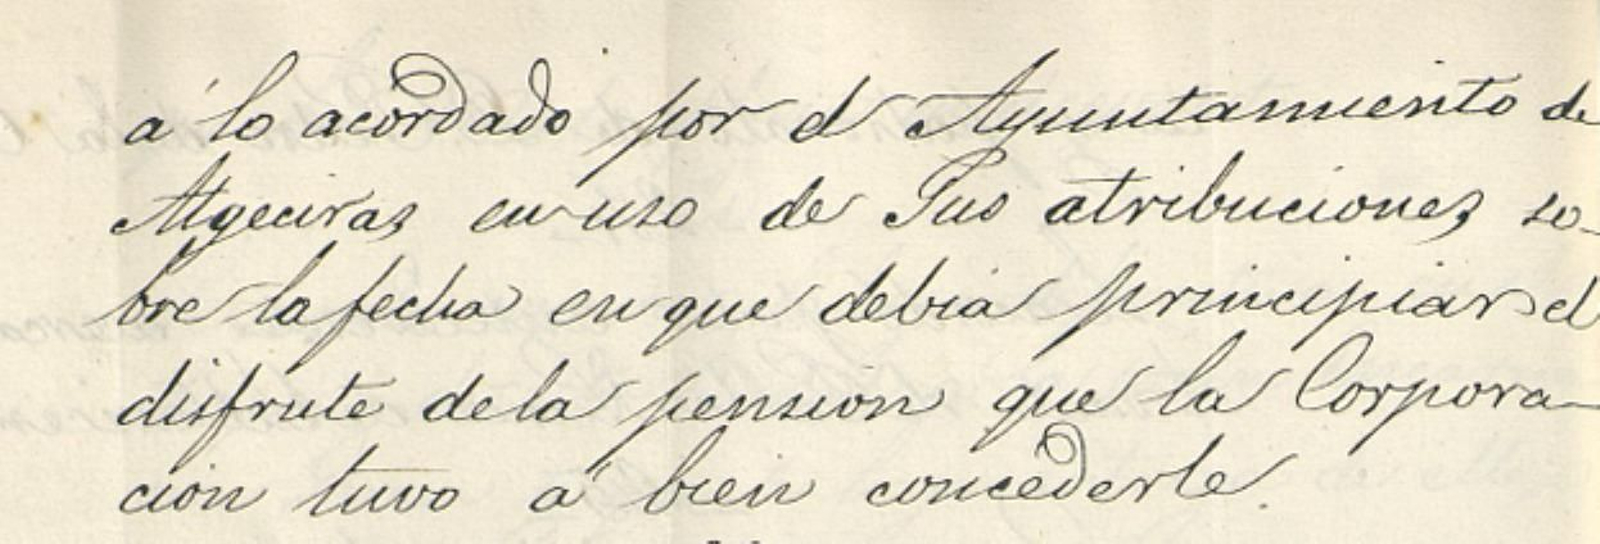 á lo acordado por el Ayuntamiento de
Algeciras en uso de Sus atribuciones so-
bre la fecha en que debia principiar el
disfrute de la pension que la Corpora-
cion tuvo á bien concederle.